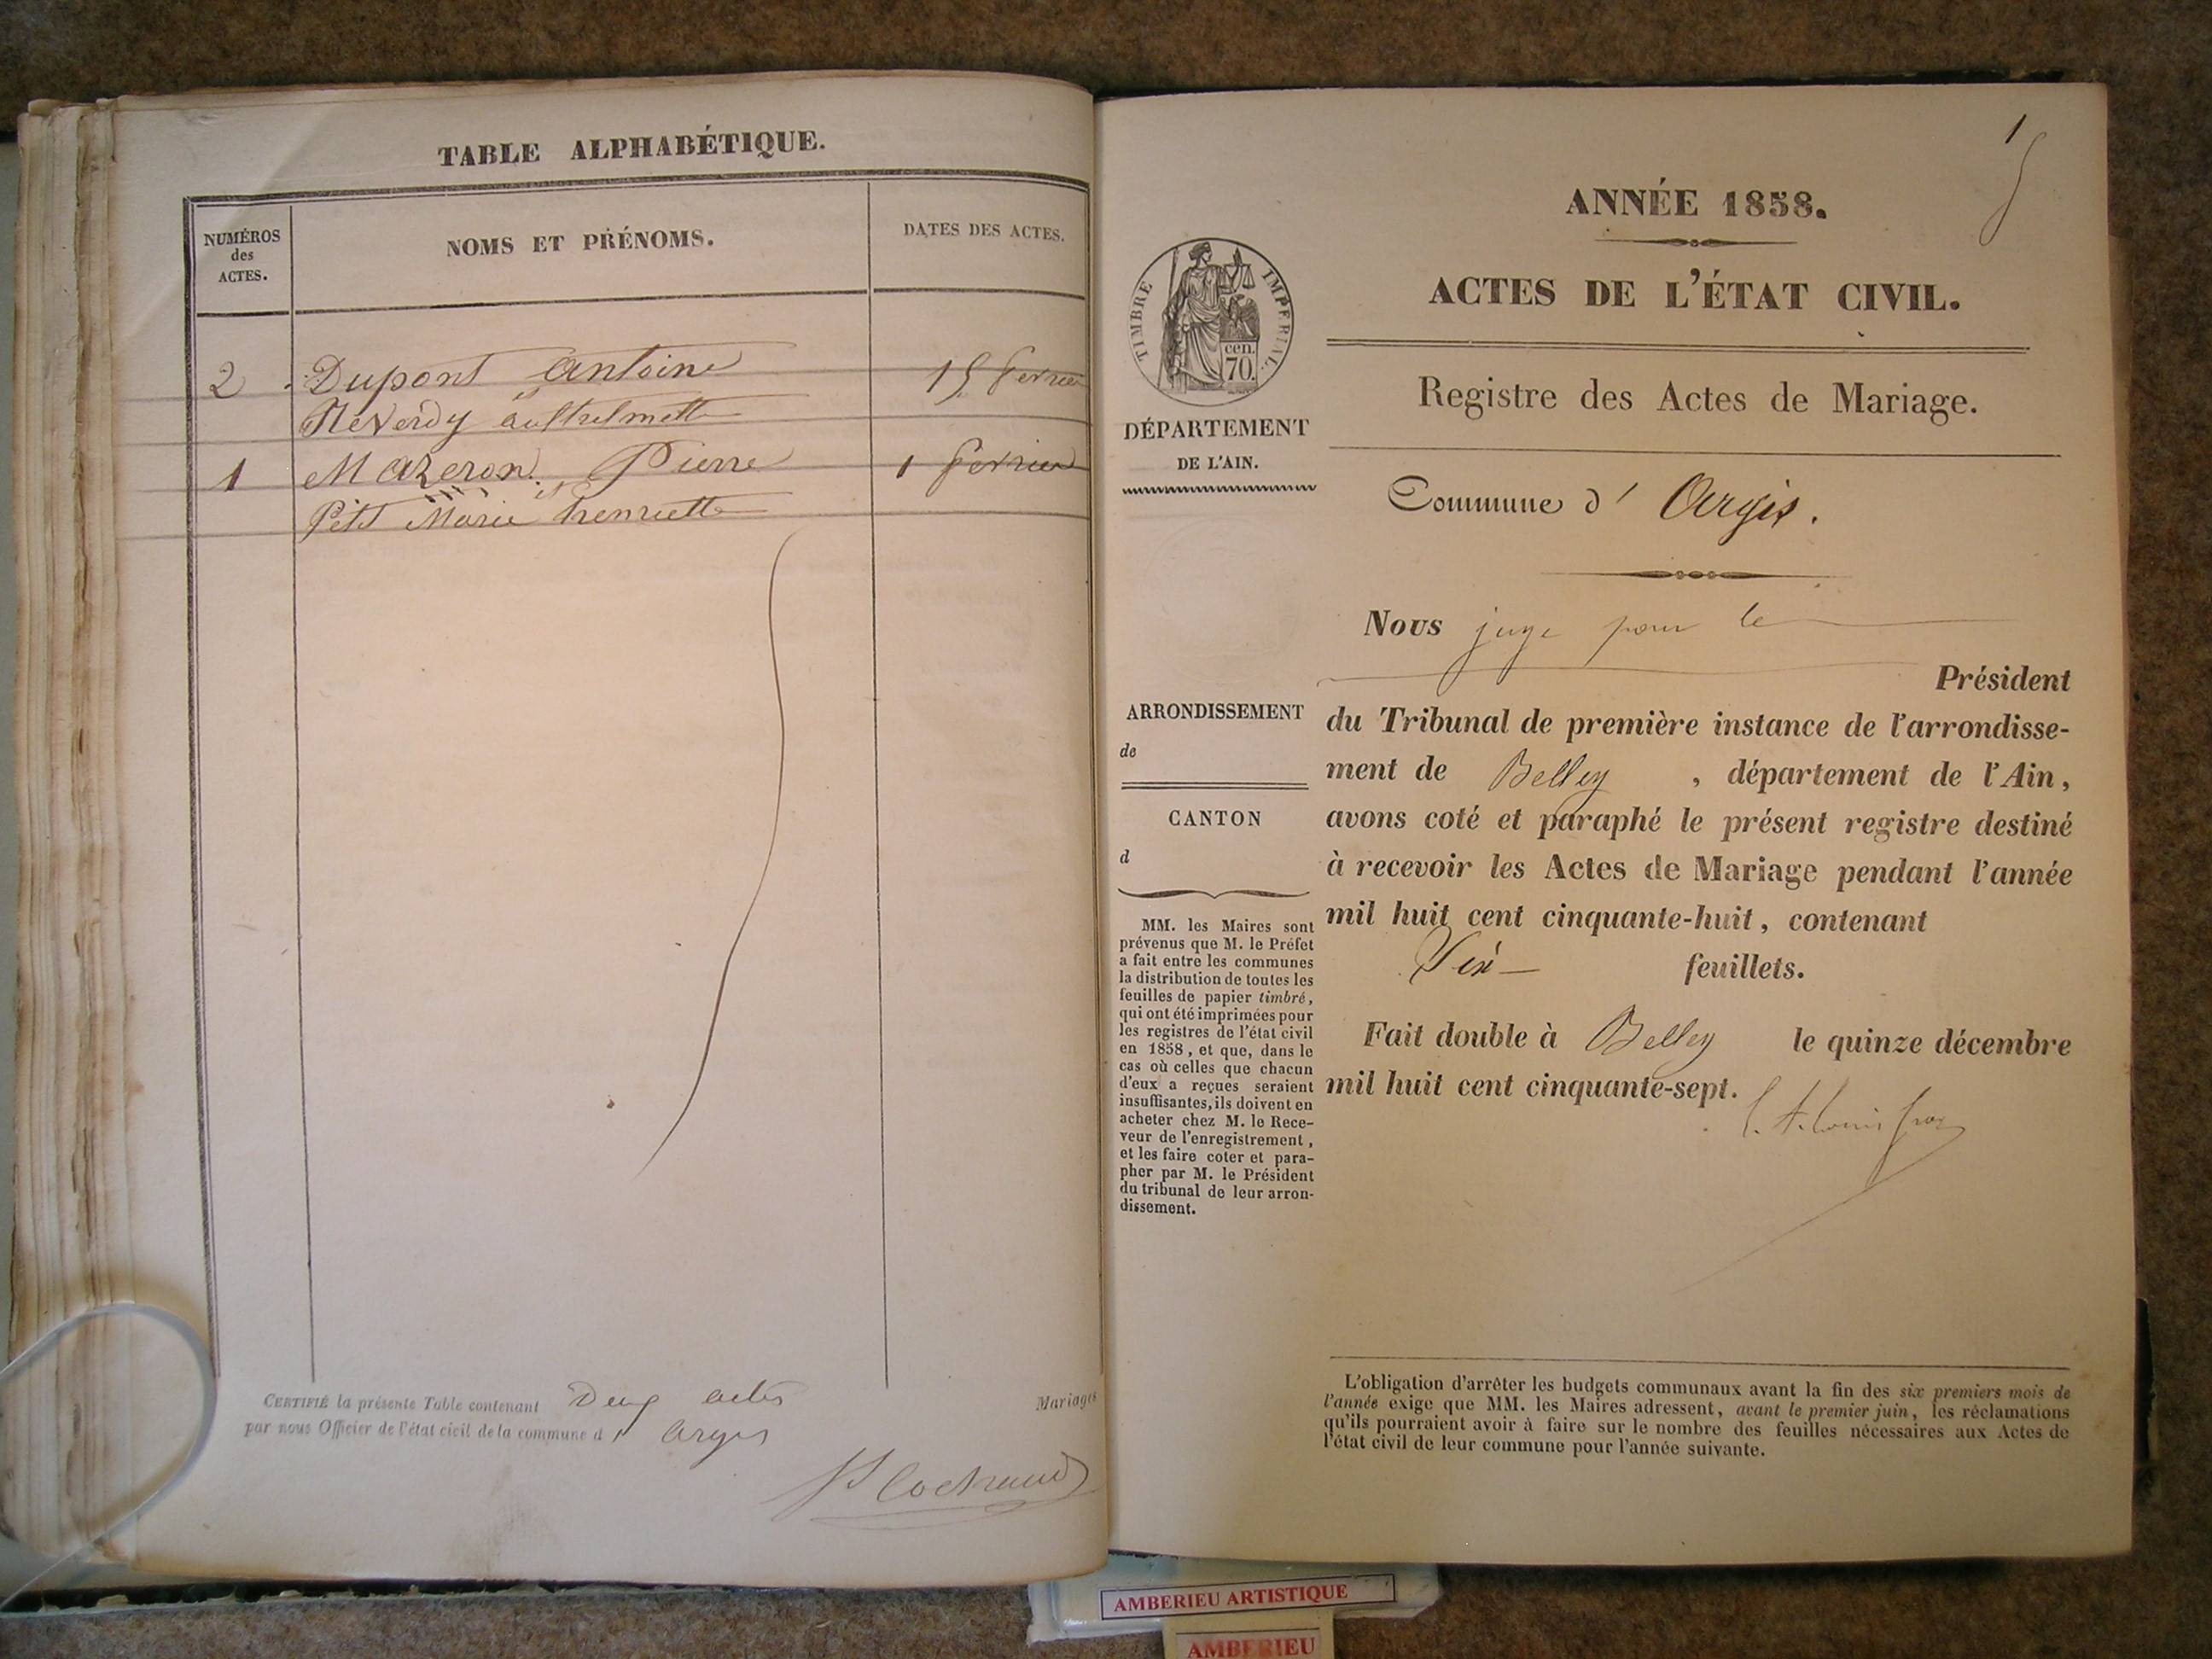 TABLE ALPHABÉTIQUE.
NUMÉROS
des
ACTES.
NOMS ET PRÉNOMS.
DATES DES ACTES.
2 Dupont Antoine 15 fevrier
et
Reverdy
1 Mazeron Pierre 1 fevrier
et
Petit Marie henriette
CERTIFIÉ la présente Table contenant Deux actes Mariages
par nous Officier de l'état civil de la commune d' Argis
1
ANNÉE 1858.
ACTES DE L'ÉTAT CIVIL.
Registre des Actes de Mariage.
Commune d' Argis.
TIMBRE IMPÉRIAL.
cen.
70.
DÉPARTEMENT
DE L'AIN.
ARRONDISSEMENT
de
CANTON
d
MM. les Maires sont
prévenus que M. le Préfet
a fait entre les communes
la distribution de toutes les
feuilles de papier timbré,
qui ont été imprimées pour
les registres de l'état civil
en 1858, et que, dans le
cas où celles que chacun
d'eux a reçues seraient
insuffisantes, ils doivent en
acheter chez M. le Rece-
veur de l'enregistrement,
et les faire coter et para-
pher par M. le Président
du tribunal de leur arron-
dissement.
Nous juge pour le
Président
du Tribunal de première instance de l'arrondisse-
ment de Belley , département de l'Ain,
avons coté et paraphé le présent registre destiné
à recevoir les Actes de Mariage pendant l'année
mil huit cent cinquante-huit, contenant
feuillets.
Fait double à Belley le quinze décembre
mil huit cent cinquante-sept.
L'obligation d'arrêter les budgets communaux avant la fin des six premiers mois de
l'année exige que MM. les Maires adressent, avant le premier juin, les réclamations
qu'ils pourraient avoir à faire sur le nombre des feuilles nécessaires aux Actes de
l'état civil de leur commune pour l'année suivante.
AMBERIEU ARTISTIQUE
AMBERIEU